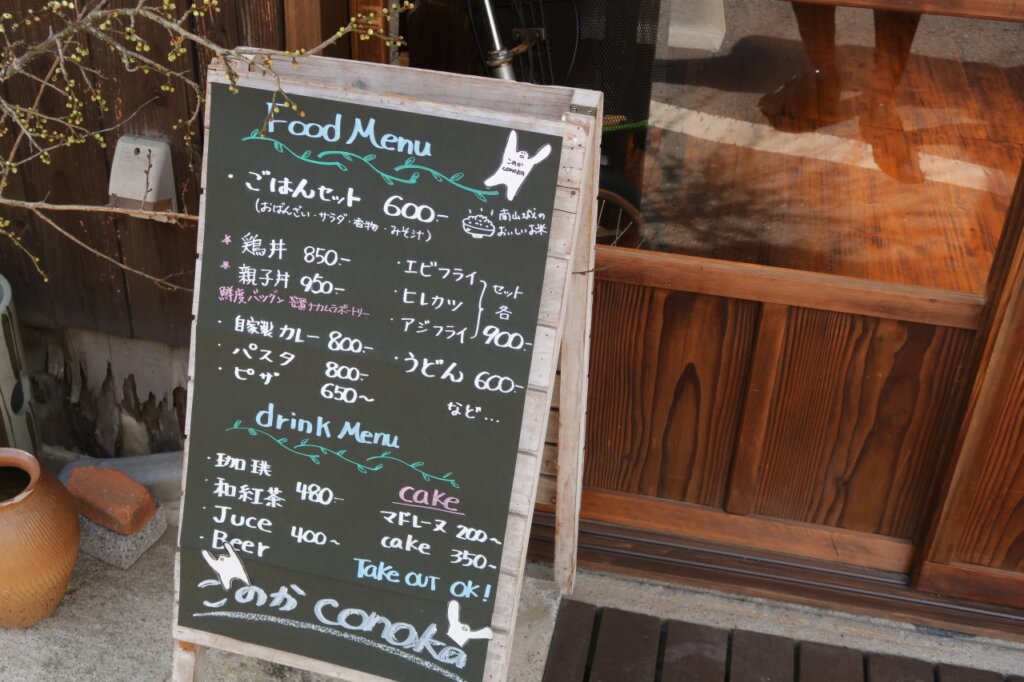 Food Menu
このか
conoka
・ごはんセット 600-
(おばんざい・サラダ・香物・みそ汁)
南山城の
おいしいお米
* 鶏丼 850.-
* 親子丼 950.-
鮮度バツグン
・自家製カレー 800.-
・パスタ 800.-
・ピザ 650~
・エビフライ
・ヒレカツ
・アジフライ
セット
各
900.-
・うどん 600.-
など...
drink Menu
・珈琲
・和紅茶 480.-
・Juce
・Beer 400~
cake
マドレーヌ 200~
cake 350~
Take OUT OK!
このか conoka